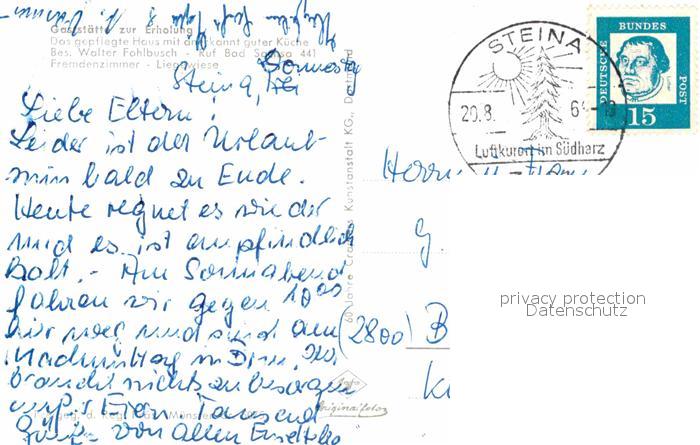 Gaststätte zur Erholung
Das gepflegte Haus mit anerkannt guter Küche
Bes. Walter Fohlbusch - Ruf Bad Sachsa 441
Fremdenzimmer - Liegewiese
Steina,
Liebe Eltern!
Leider ist der Urlaub
nun bald zu Ende.
Heute regnet es wieder
und es ist empfindlich
kalt. - Am Sonnabend
fahren wir gegen 10
hier weg und sind am
Nachmittag in
braucht nichts zu besorgen
Tausend
Grüße von allen
60 Jahre Cramers Kunstanstalt KG., Dortmund
STEINA
20.8.
Luftkurort im Südharz
DEUTSCHE
BUNDES
POST
15
Herrn
(2800) B
privacy protection
Datenschutz
Originalfoto